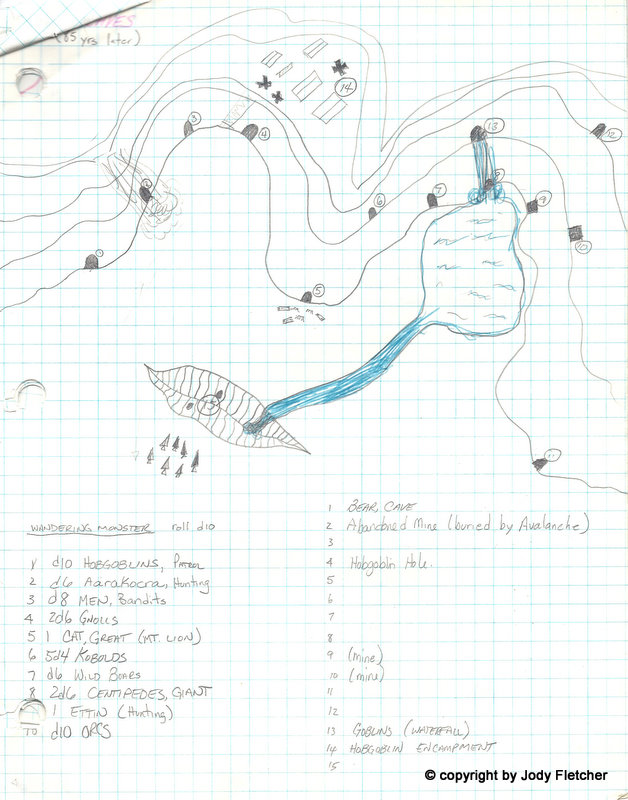 yrs later)
14
3
4
13
12
2
6
7
8
9
10
1
5
15
11
WANDERING MONSTER roll d10
1 d10 HOBGOBLINS, PATROL
2 d6 Aarakocra, Hunting
3 d8 MEN, Bandits
4 2d6 GNOLLS
5 1 CAT, GREAT (MT. LION)
6 5d4 KOBOLDS
7 d6 WILD BOARS
8 2d6 CENTIPEDES, GIANT
1 ETTIN (Hunting)
10 d10 ORCS
1 BEAR, CAVE
2 Abandoned Mine (buried by Avalanche)
3
4 Hobgoblin Hole.
5
6
7
8
9 (mine)
10 (mine)
11
12
13 GOBLINS (WATERFALL)
14 HOBGOBLIN ENCAMPMENT
15
© copyright by Jody Fletcher